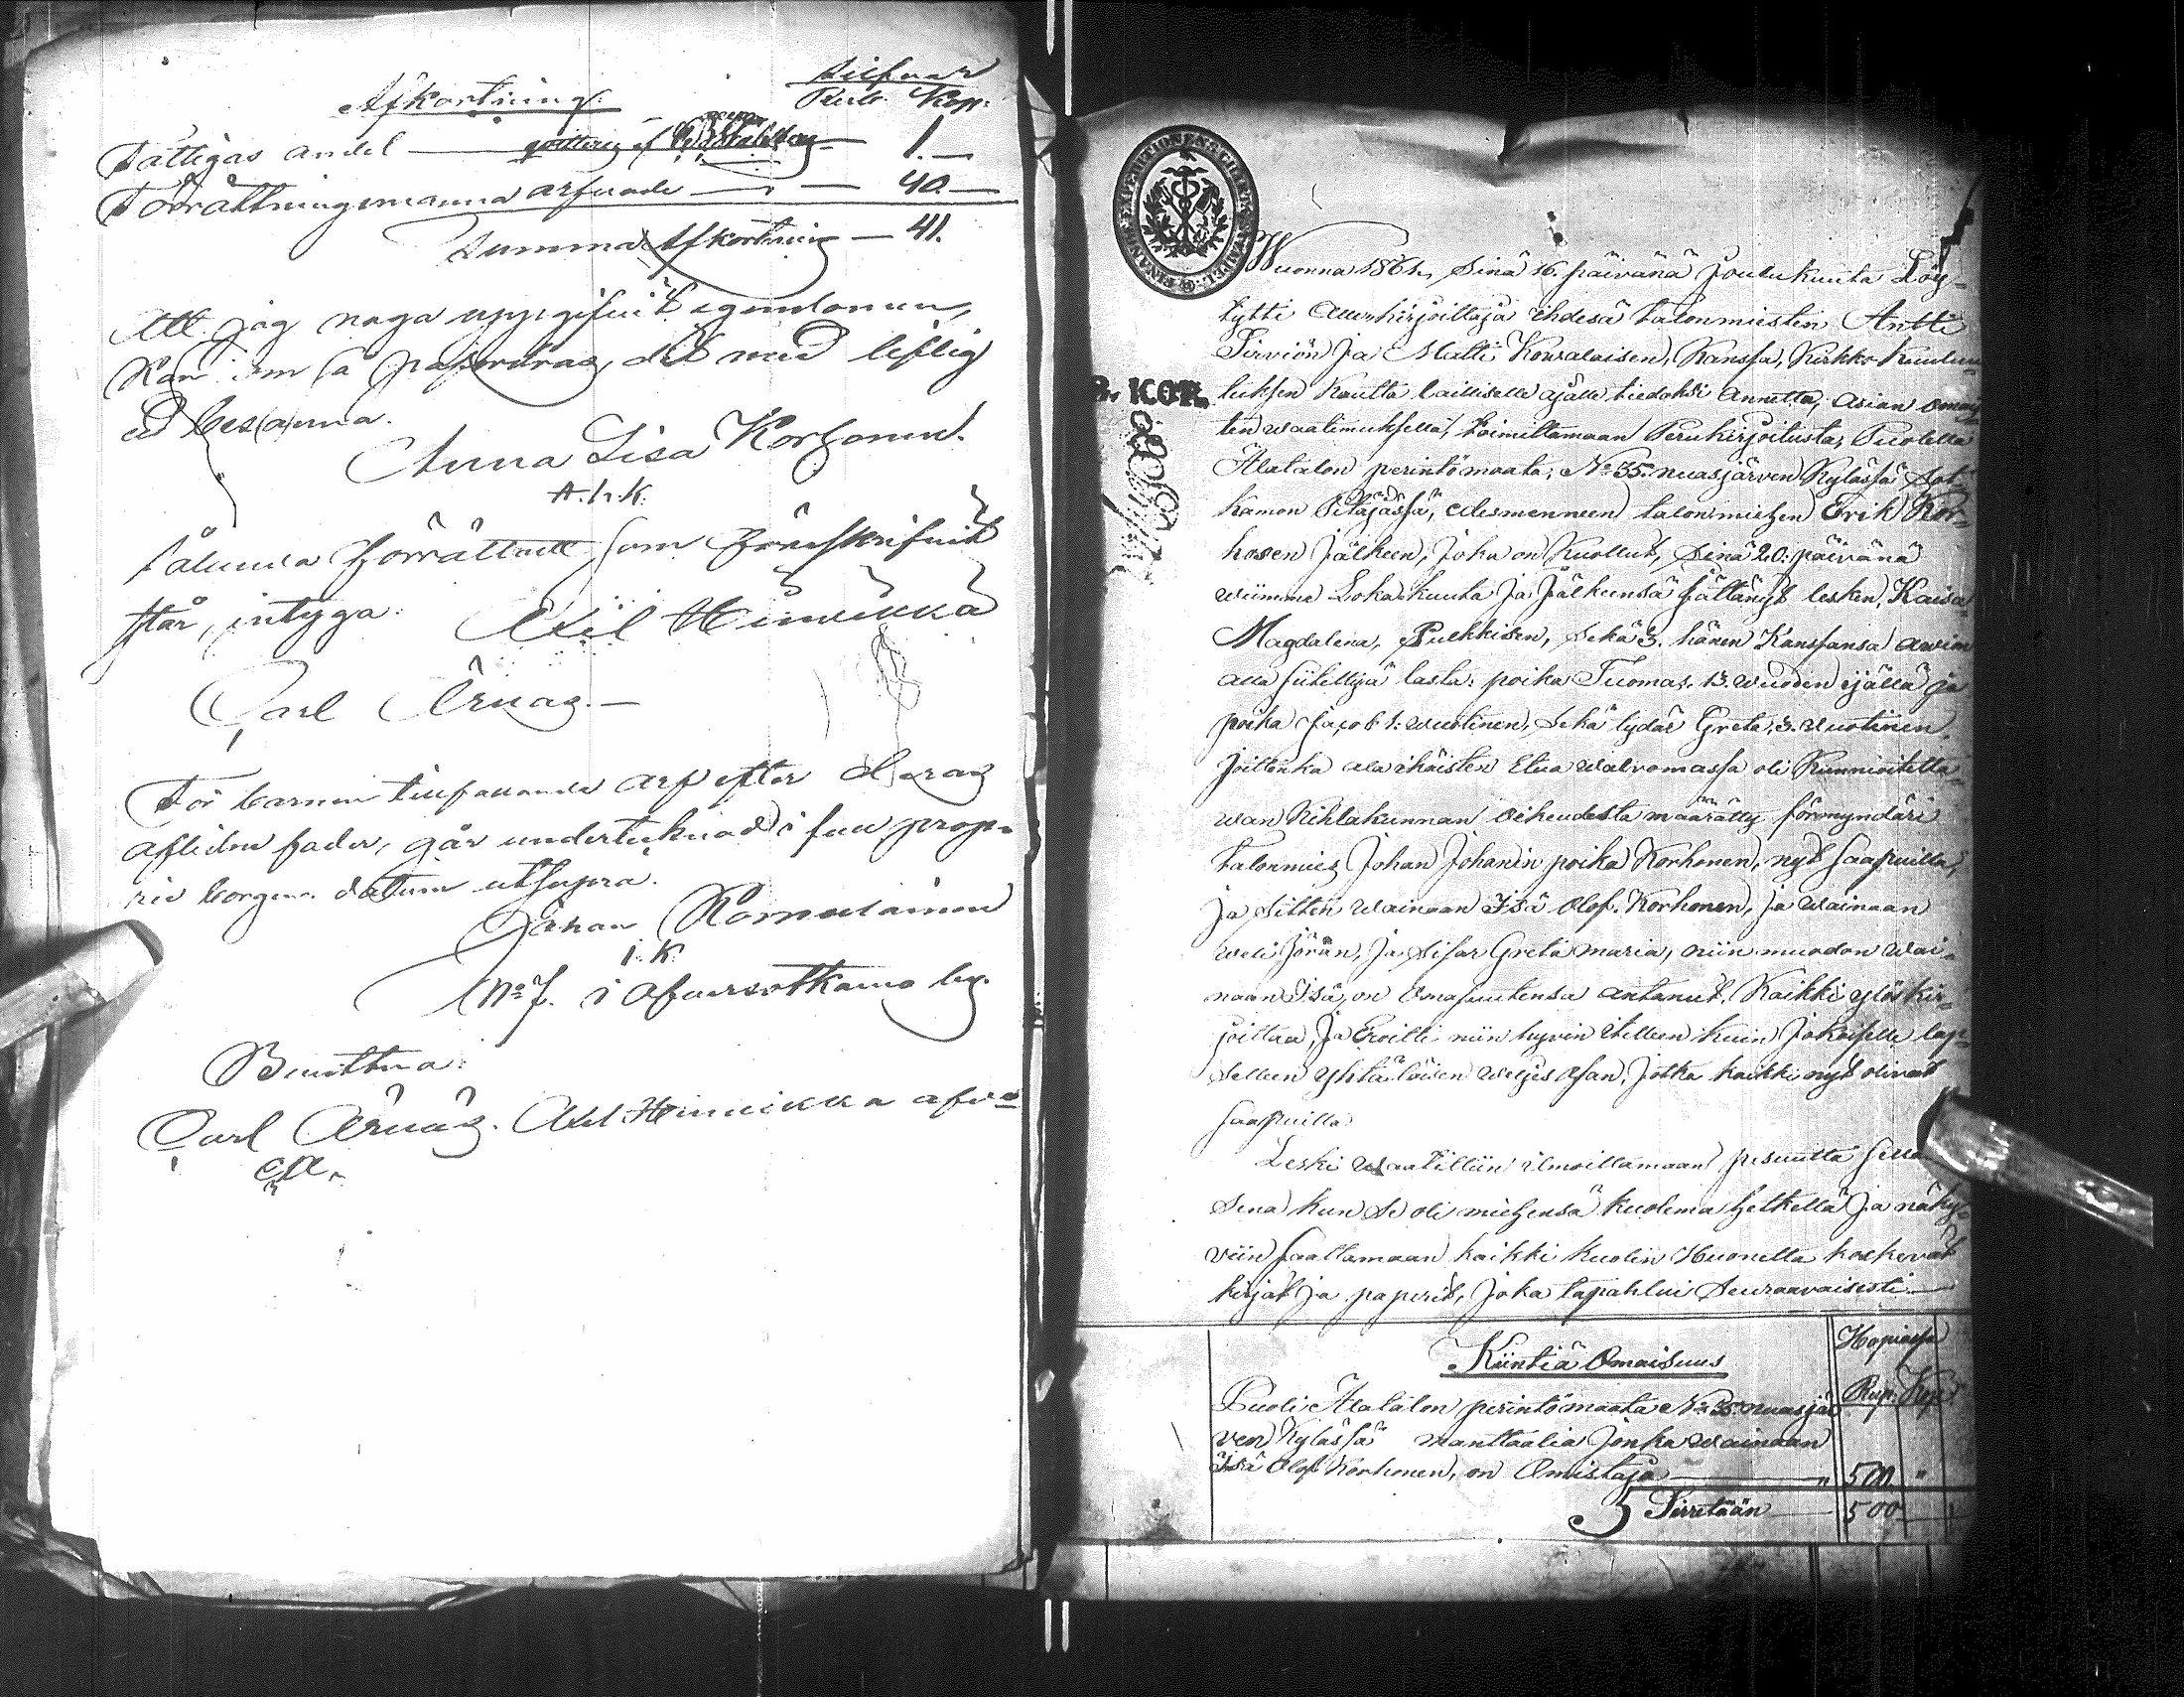 Afkortning.
Silfver
Rub. Kop.
Fattigas andel — qvitteras af — 1.—
Förrättningsmanna arfvode — — 40.—
Summa Afkortning — 41.
Att jag noga uppgifvit egendomen,
kan om så påfordras, det med liflig
ed besanna.
Anna Lisa Korhonen.
A.L.K.
Sålunda förrättadt som föreskrifvit
står, intyga.
Axel Heinikka
Carl Ärnäs.—
För barnen tillfallande arf efter deras
aflidne fader, går undertecknad i full proprie
borgen. datum utsupra.
Johan Komulainen
I.K.
No 7. i Ofversotkamo by.
Bevittna:
Carl Ärnäs. Axel Heinikka
C.Ä.
Wuonna 1861, Sinä 16. päivänä Joulukuuta Löy-
tytti Allekirjoittaja ihdesä talonmiesten Antti
Sirviön ja Matti Kowalaisen, Kanssa, Kirkko Kuulu-
tuksen Kautta lailliselle ajalle tiedoksi annetta, asian omais-
ten waatimuksella, toimittamaan Perukirjoitusta, Puolella
Alatalon perintömaata, No 35. nuasjärven Kylässä Sot-
kamon Pitäjässä, edesmenneen talonmiehen Erik Kor-
hosen Jälkeen, Joka on Kuollut, Sinä 20: päivänä
wiimme Lokakuuta Ja Jälkeensä Jättänyt lesken, Kaisa
Magdalena, Pulkkisen, Sekä 3. hänen Kanssansa awion
alla siitettyä lasta: poika Tuomas. 13. wuoden ijällä ja
poika Jacob 1. wuotinen, Sekä tydär Greta, 3. wuotinen.
Joittenka ala ikäisten etua walvomassa oli Kunnioitetta-
wan Kihlakunnan oikeudesta määrätty förmyndäri
talonmies Johan Johanin poika Korhonen, nyt saapuilla,
ja Sitten wainaan Isä Olof. Korhonen, ja wainaan
weli Jöran, Ja Sisar Greta maria, niin muodon wai-
naan Isä, on Omasuutensa antanut, Kaikki ylöskir-
joittaa, Ja Eroitti niin hyvin itelleen kuin Jokaiselle lap-
selleen yhtäläisen weljes osan, Jotka kaikki nyt olivat
saapuilla.
Leski waatittiin ilmoittamaan pesuutta
Sena kun Se oli miehensä kuolema hetkellä Ja näky-
viin saattamaan kaikki Kuolin Huonetta koskevat
kirjat Ja paperit, Joka tapahtui Seuraavaisesti —
8. KOP.
Kiintiä Omaisuus
Hopiassa
Rup. Kop.
Puoli Alatalon perintömaata No 35. nuasjär
ven Kylässä manttaalia Jonka wainaan
Isä Olof Korhonen, on Omistaja — 500. "
Siirretään — 500